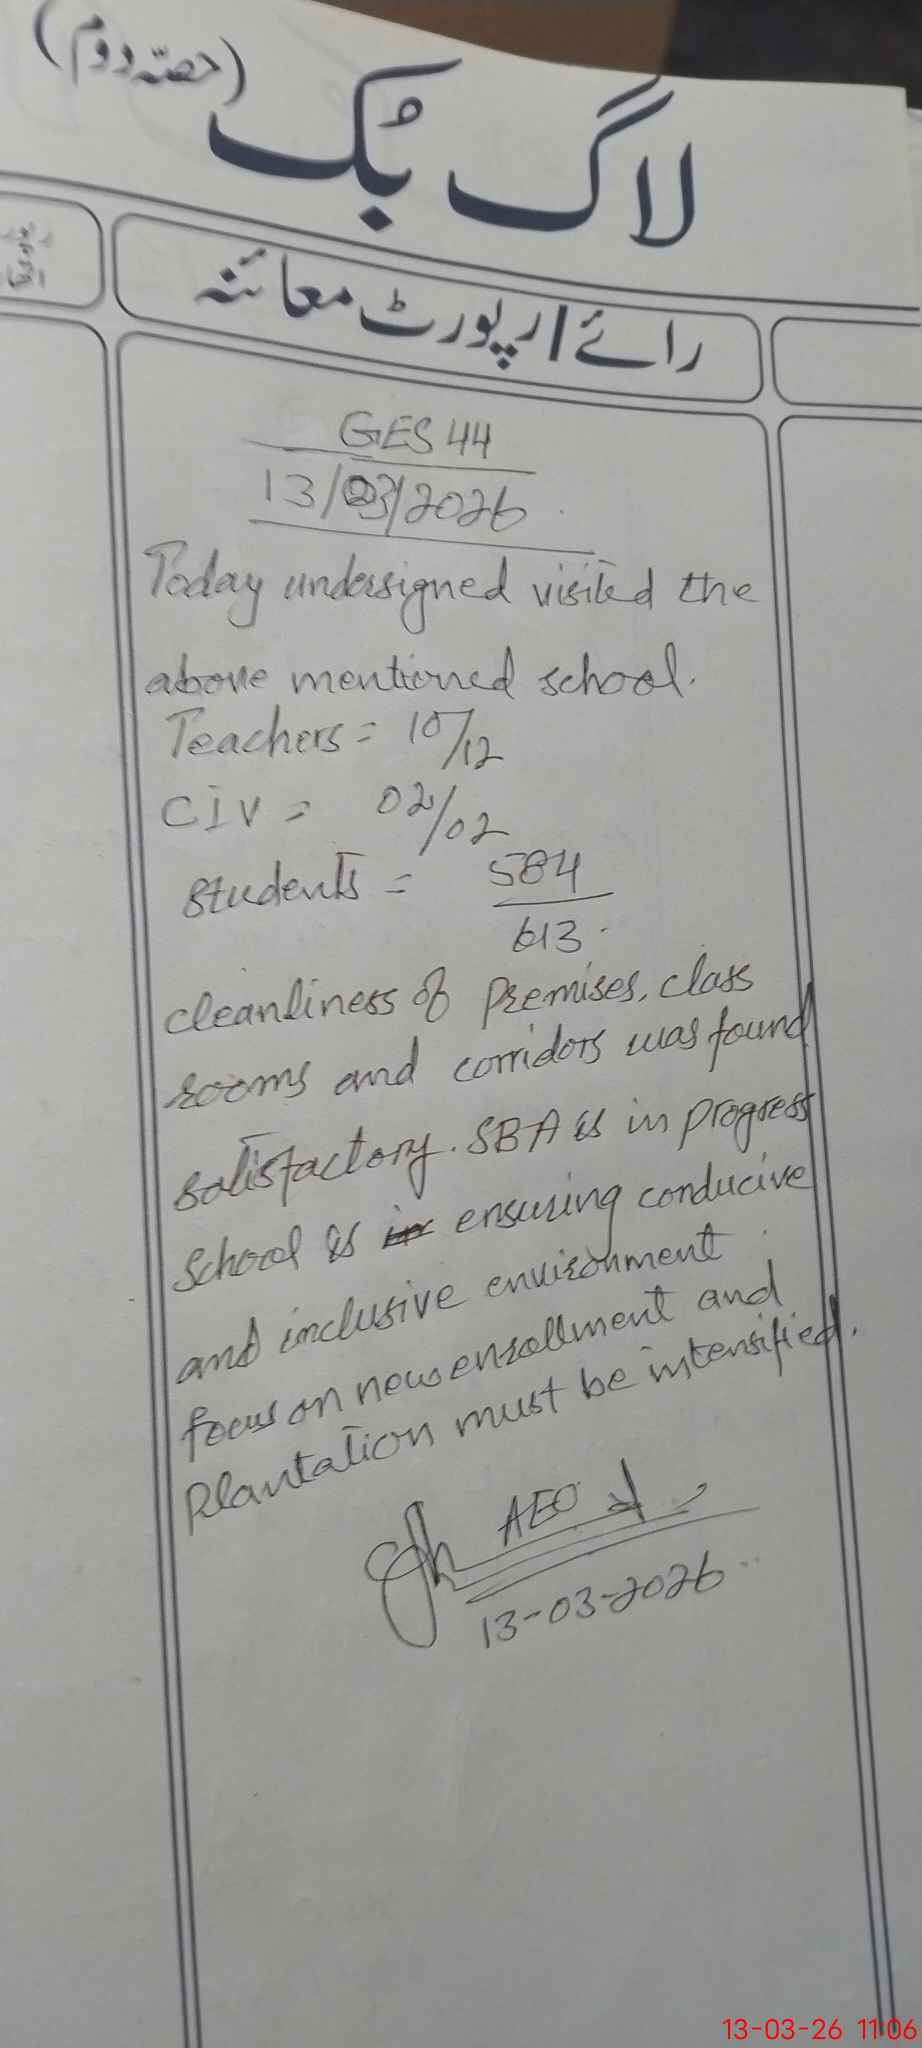 (حصّہ دوم)
لاگ بُک
رائے/رپورٹ معائنہ
GES 44
13/03/2026
Today undersigned visited the
above mentioned school.
Teachers = 10/12
CIV = 02/02
Students = 584
613.
cleanliness of premises, class
rooms and corridors was found
satisfactory. SBA is in progress
School is ensuring conducive
and inclusive environment
focus on new enrollment and
Plantation must be intensified.
AEO
13-03-2026
13-03-26 11:06